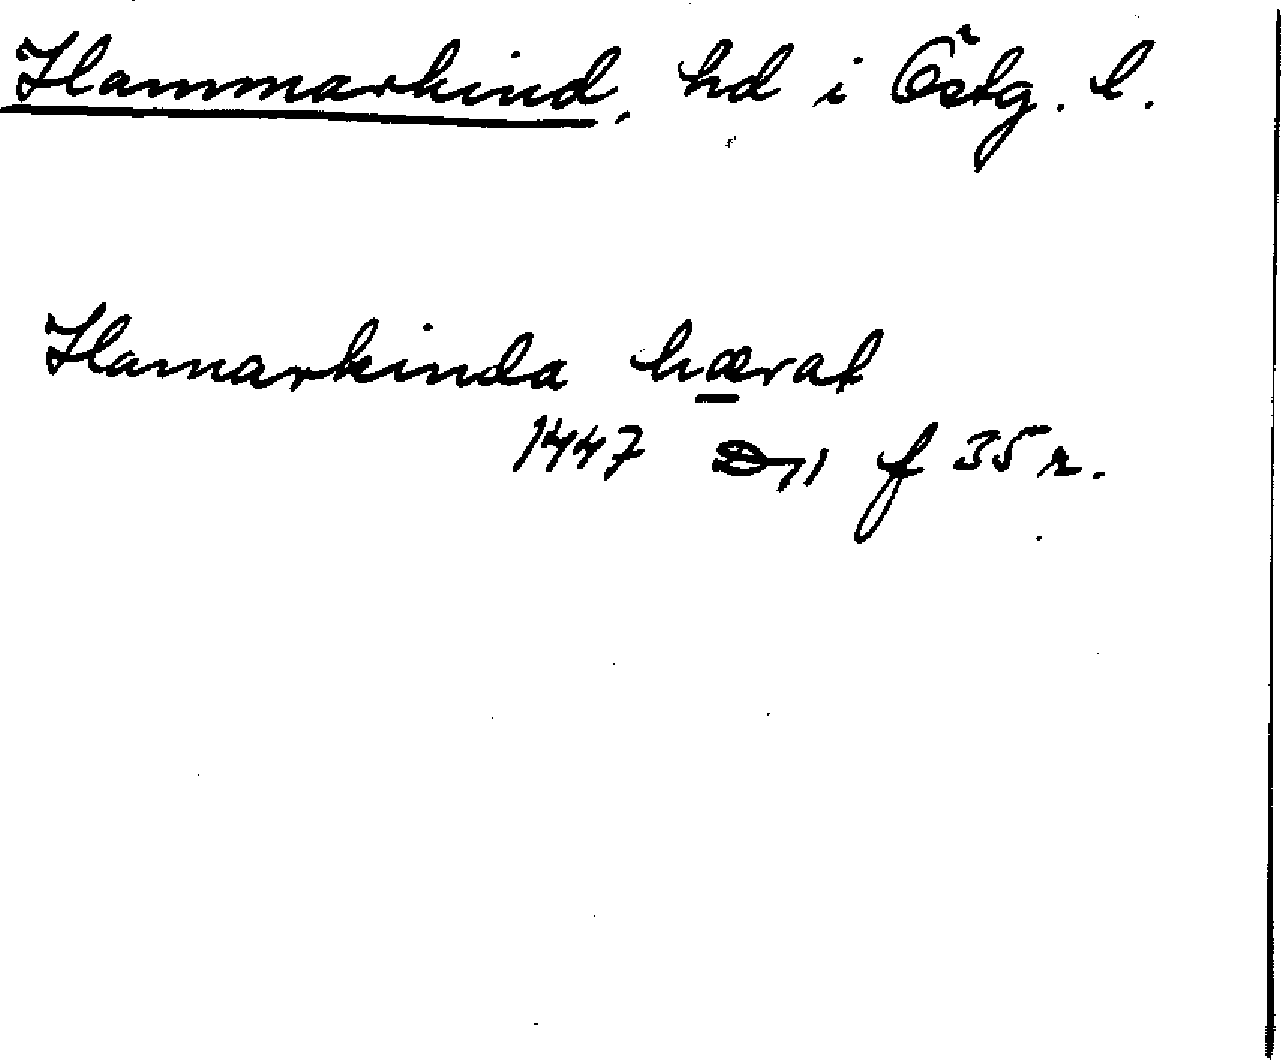 Hammarkind, hd i Östg. l.
Hamarkinda hærat
1447 D11 f 35 r.